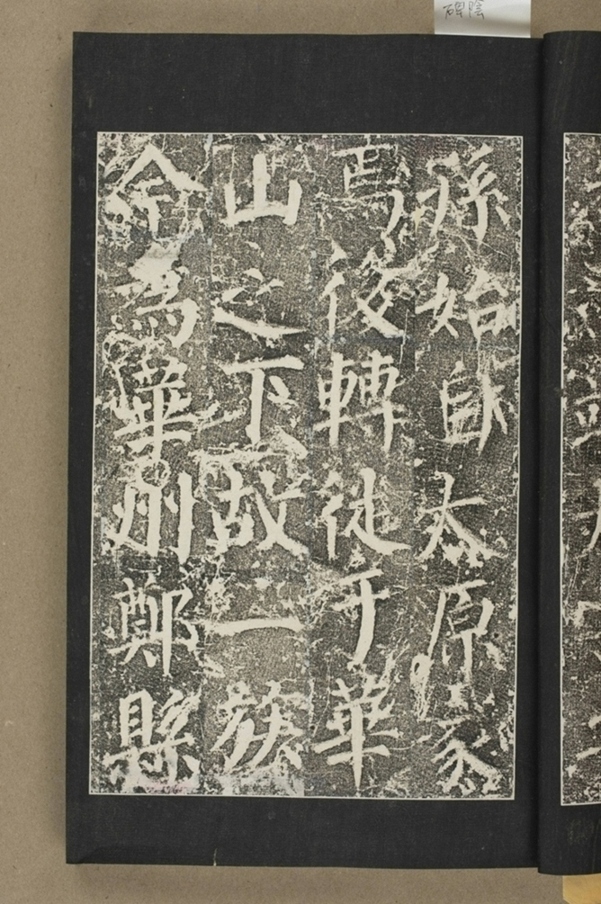 碑陰
孫始自太原家
焉後轉徙于華
山之下故一族
今爲華州鄭縣